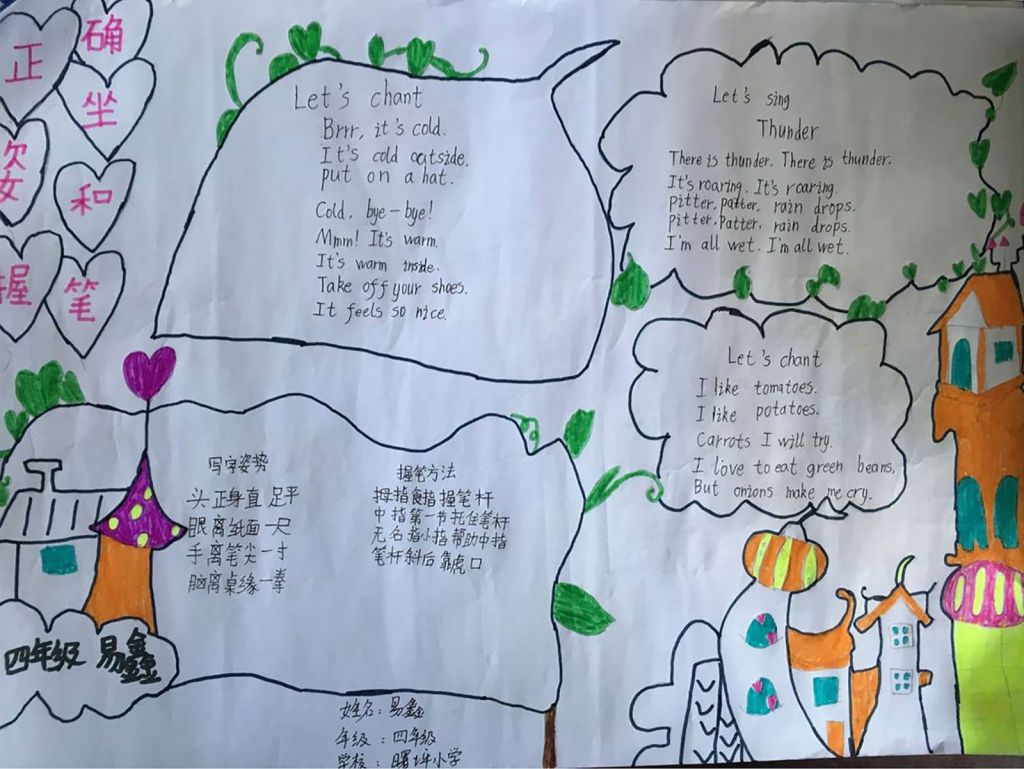 正确
坐姿和
握笔
Let's chant
Brrr, it's cold.
It's cold outside.
put on a hat.
Cold, bye-bye!
Mmm! It's warm.
It's warm inside.
Take off your shoes.
It feels so nice.
Let's sing
Thunder
There is thunder. There is thunder.
It's roaring. It's roaring.
pitter, patter, rain drops.
pitter, patter, rain drops.
I'm all wet. I'm all wet.
Let's chant
I like tomatoes.
I like potatoes.
Carrots I will try.
I love to eat green beans,
But onions make me cry.
写字姿势
头正身直足平
眼离纸面一尺
手离笔尖一寸
脑离桌缘一拳
握笔方法
拇指食指握笔杆
中指第一节托住笔杆
无名指小指帮助中指
笔杆斜后靠虎口
四年级 易鑫
姓名：易鑫
年级：四年级
学校：曙坪小学